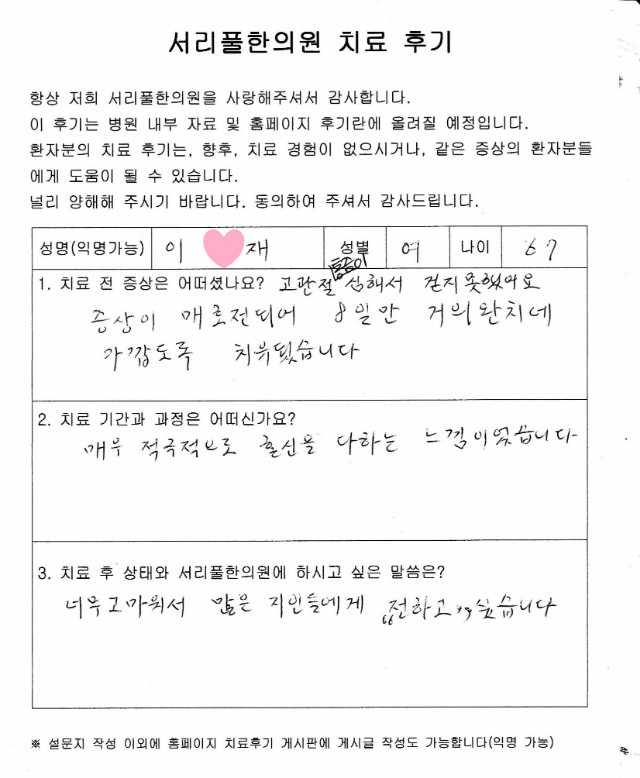 서리풀한의원 치료 후기
항상 저희 서리풀한의원을 사랑해주셔서 감사합니다.
이 후기는 병원 내부 자료 및 홈페이지 후기란에 올려질 예정입니다.
환자분의 치료 후기는, 향후, 치료 경험이 없으시거나, 같은 증상의 환자분들
에게 도움이 될 수 있습니다.
널리 양해해 주시기 바랍니다. 동의하여 주셔서 감사드립니다.
성명(익명가능) 이 재 성별 여 나이 67
1. 치료 전 증상은 어떠셨나요? 고관절 통증이 심해서 걷지 못했어요
증상이 매로전되어 8일만 거의완치에
가깝도록 치유됐습니다
2. 치료 기간과 과정은 어떠신가요?
매우 적극적으로 혼신을 다하는 느낌이었습니다
3. 치료 후 상태와 서리풀한의원에 하시고 싶은 말씀은?
너무고마워서 많은 지인들에게 전하고 싶습니다
※ 설문지 작성 이외에 홈페이지 치료후기 게시판에 게시글 작성도 가능합니다(익명 가능)